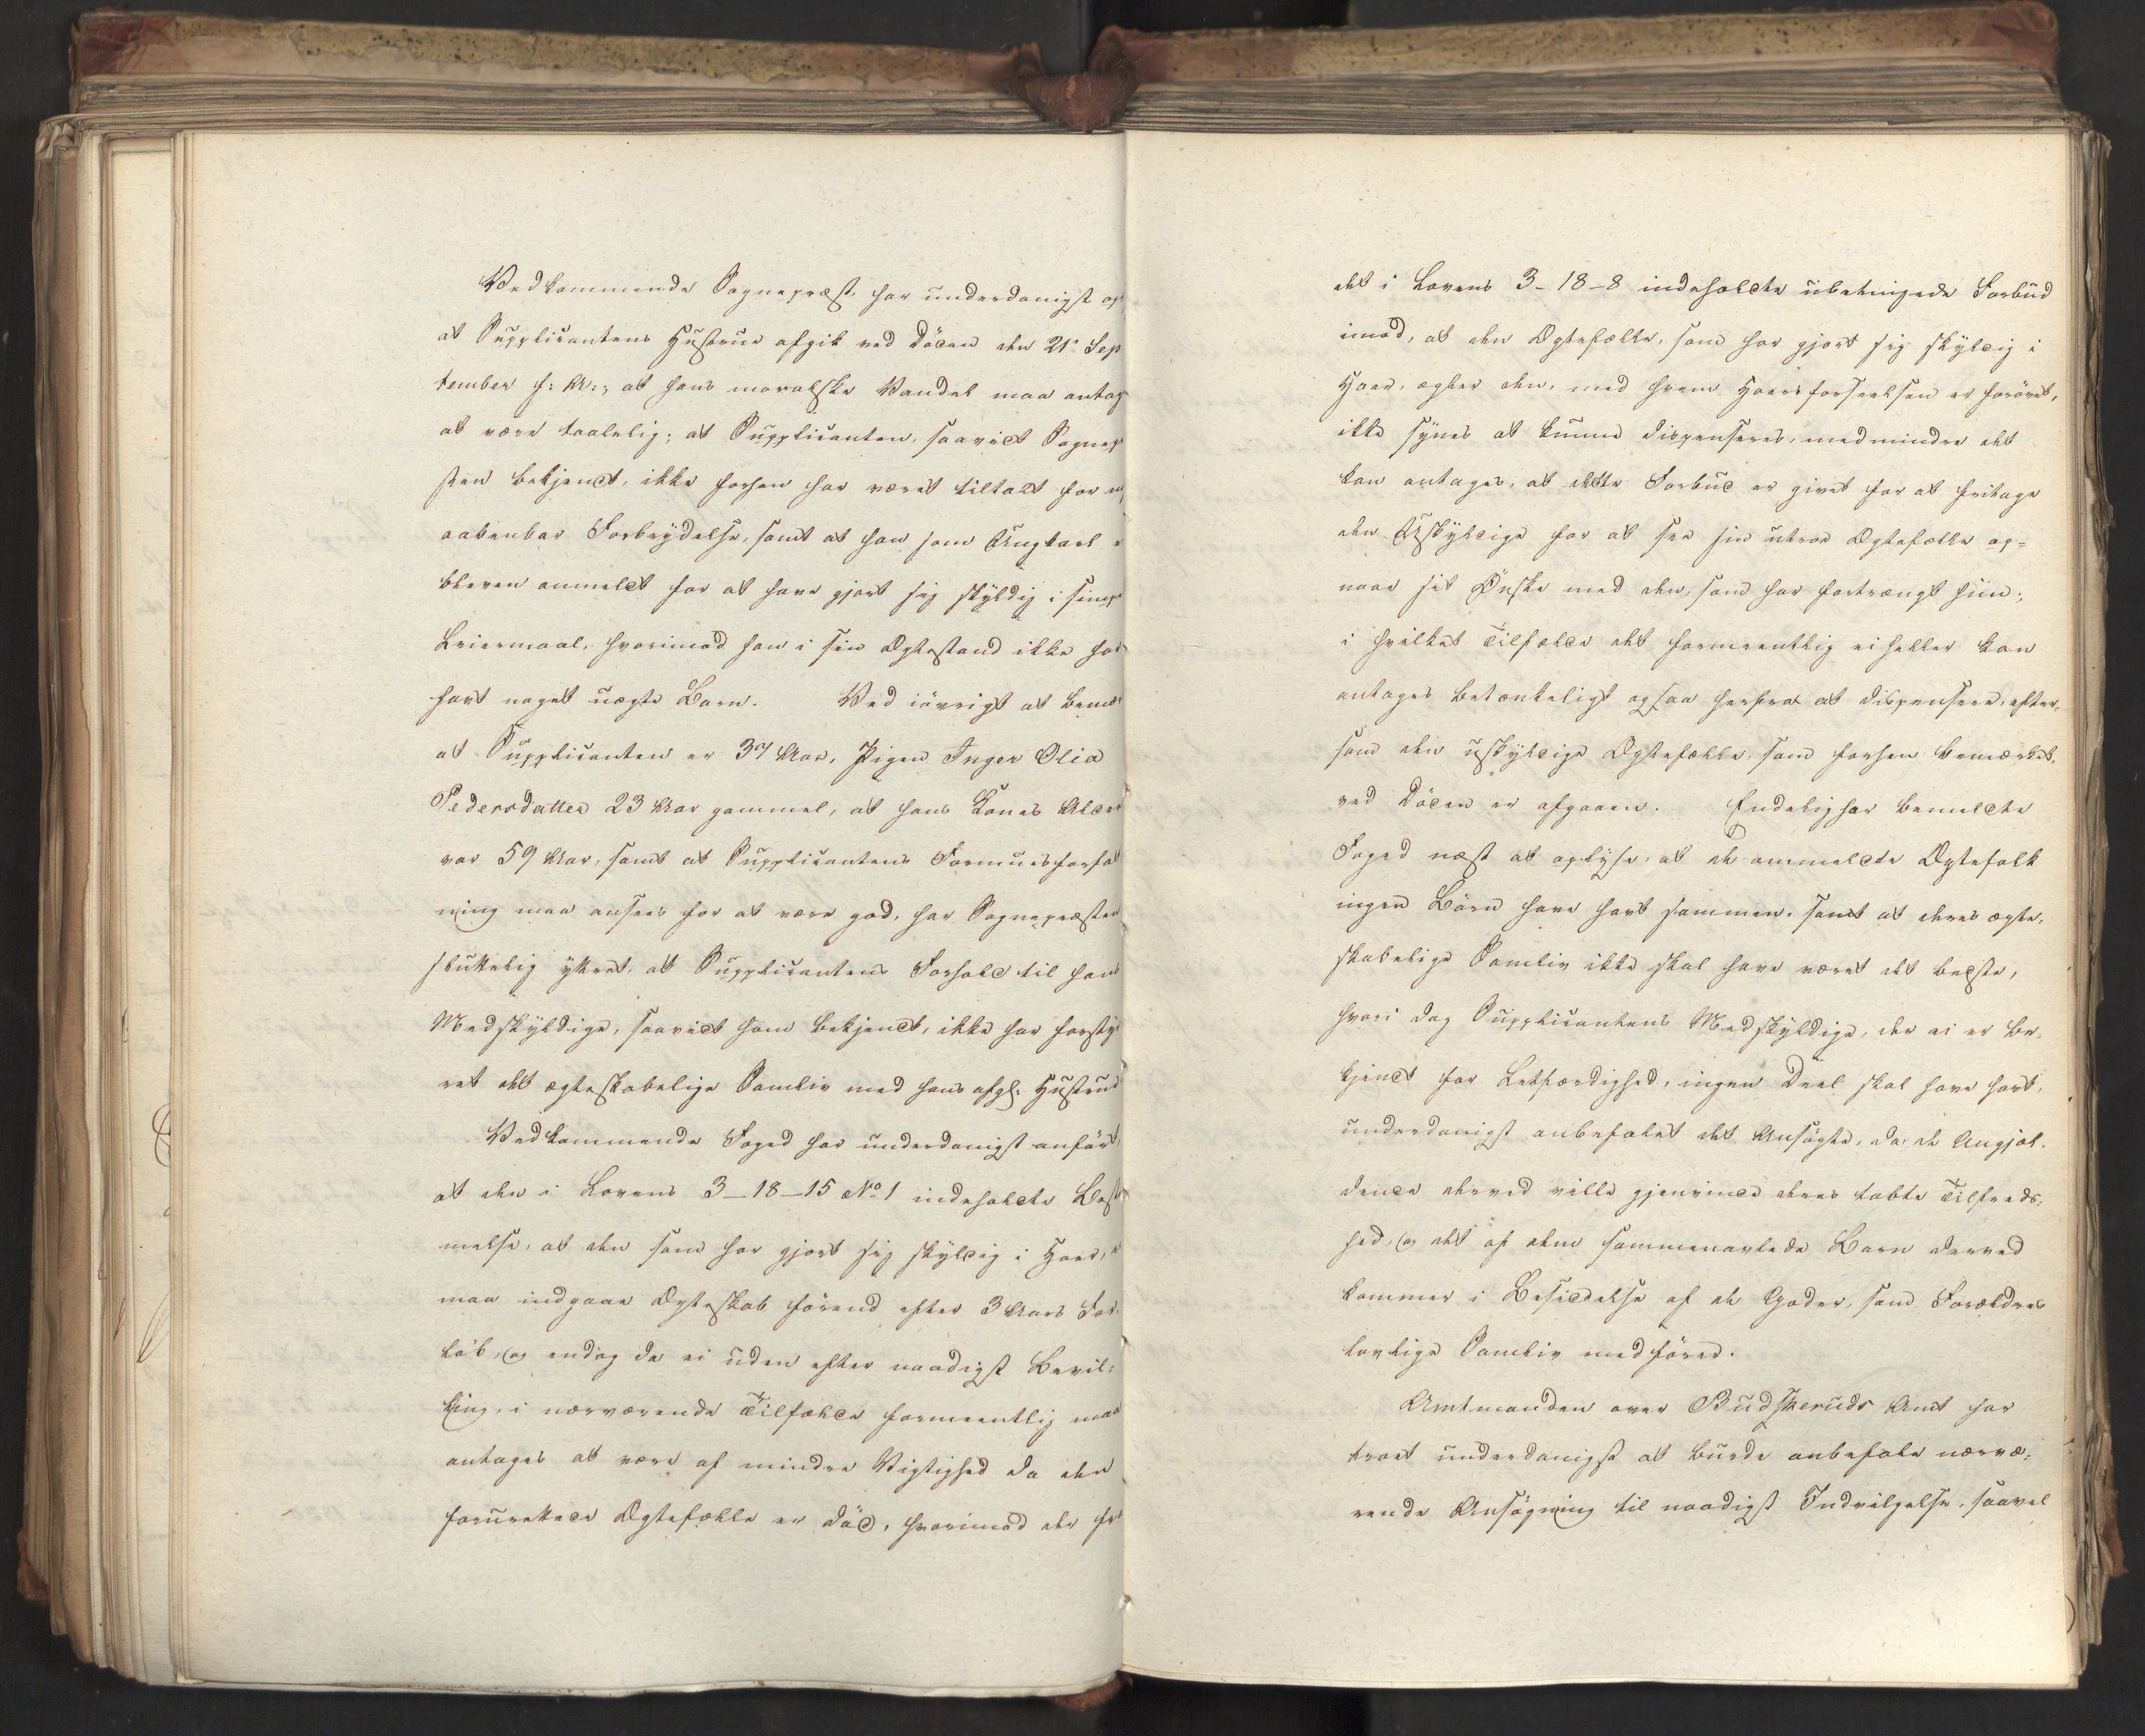 Vedkommende Sognepræst har underdanigst op
at Supplicantens Hustrue afgik ved Döden den 21de Sep
tember f: A:, at hans moralske Vandel maa antag
at være taalelig; at Supplicanten, saavidt Sognep
sten bekjendt, ikke forhen har været tiltalt for n
aabenbar Forbrydelse, samt at han som Ungkarl e
bleven anmeldt for at have gjort sig skyldig i simp
Leiermaal, hvorimod han i sin Ægtestand ikke har
havt noget uægte Barn. Ved iövrigt at bemær
at Supplicanten er 37 Aar, Pigen Inger Olia
Pedersdatter 23 Aar gammel, at hans Kones Alder
var 59 Aar, samt at Supplicantens Formuesforfat
ning maa ansees for at være god, har Sognepræsten
sluttelig yttret, at Supplicantens Forhold til hans
Medskyldige, saavidt ham bekjendt, ikke har forstyr
ret det ægteskabelige Samliv med hans afg: Hustrue
Vedkommende Foged har underdanigst anfört,
at den i Lovens 3-18-15 No 1 indeholdte Best
melse, at den som har gjort sig skyldig i Hoer, e
maa indgaae Ægteskab förend efter 3 Aars For
löb, og endog da ei uden efter naadigst Bevil-
ling, i nærværende Tilfælde formeentlig maa
antages at være af mindre Vigtighed da den
forurettede Ægtefælle er död, hvorimod der fra
det i Lovens 3-18-8 indeholdte ubetingede Forbud
imod, at den Ægtefælle, som har gjort sig skyldig i
Hoer, ægter den, med hvem Hoersforseelsen er forövet,
ikke synes at kunne dispenseres, medmindre det
kan antages, at dette Forbud er givet for at fritage
den Uskyldige for at see sin utroe Ægtefælle op-
naae sit Önske med den, som har fortrængt hiin;
i hvilket Tilfælde det formeentlig ei heller kan
antages betænkeligt ogsaa herfra at dispensere, efter-
som den uskyldige Ægtefælle, som forhen bemærket,
ved Döden er afgaaen. Endelig har bemeldte
Foged næst at oplyse, at de ommeldte Ægtefolk
ingen Börn have havt sammen, samt at deres ægte-
skabelige Samliv ikke skal have været det bedste,
hvori dog Supplicantens Medskyldige, der ei er be-
kjendt for Letfærdighed, ingen Deel skal have havt,
underdanigst anbefalet det Ansögte, da de Angjæl-
dende derved ville gjenvinde deres tabte Tilfreds-
hed, og det af dem sammenavlede Barn derved
kommer i Besiddelse af de Goder, som Forældres
lovlige Samliv medförer.
Amtmanden over Budskeruds Amt har
troet underdanigst at burde anbefale nærvæ-
rende Ansögning til naadigst Indvilgelse, saavel